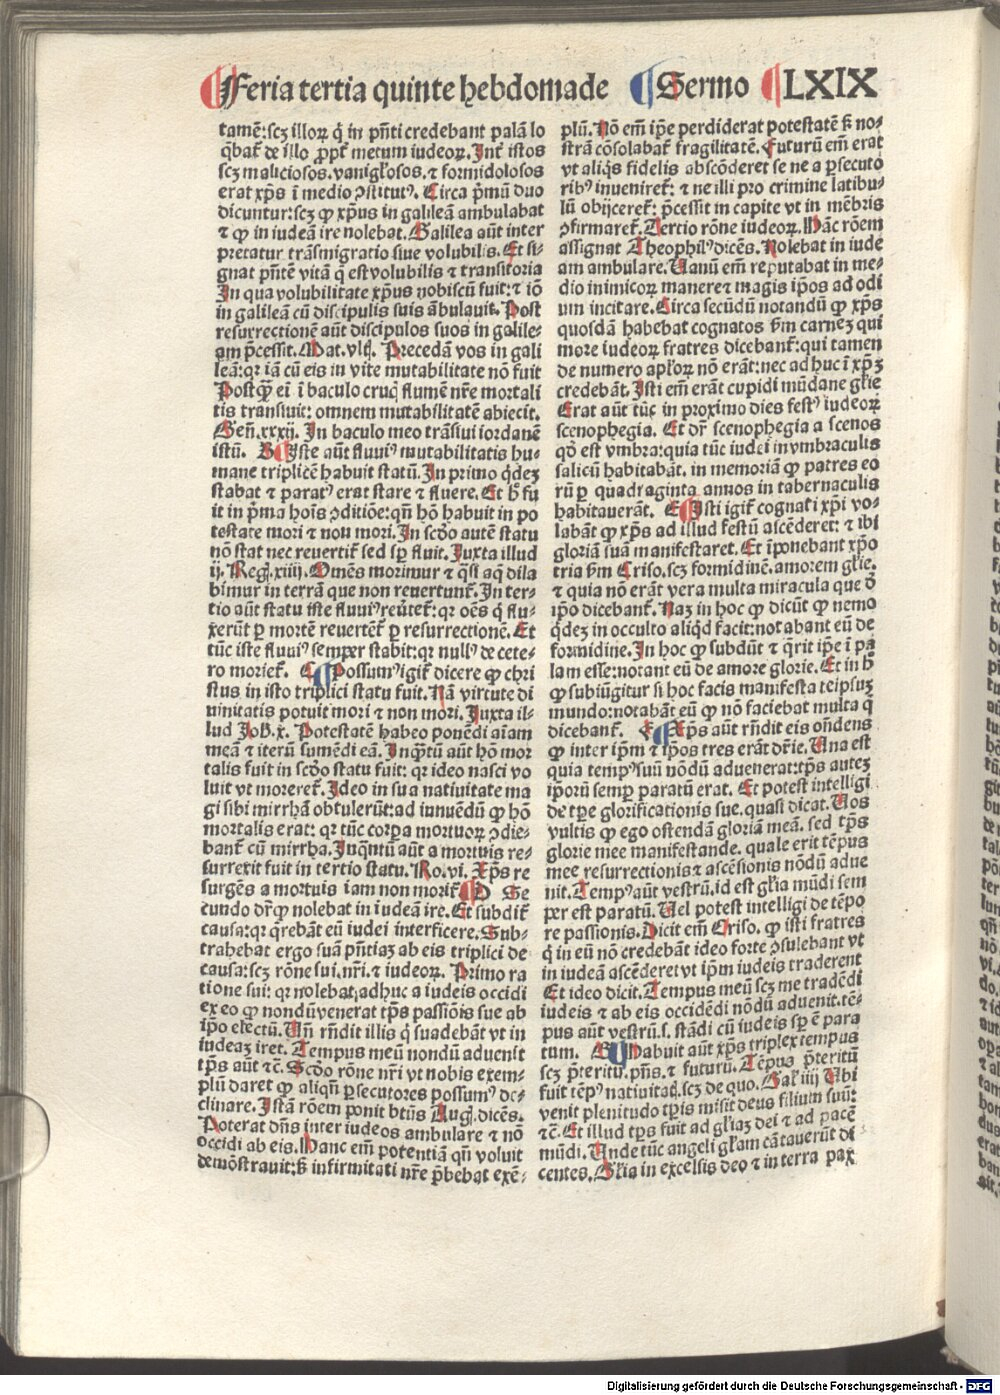 Feria tertia quinte hebdomade Sermo LXIX
tamē: scȝ illoꝝ q̇ in pñti credebant palā lo
q̄bat̄ de illo ꝓpt̄ metum iudeoꝝ. Int̄ istos
scȝ maliciosos. vanigl̄osos. ⁊ formidolosos
erat xp̄s ī medio ꝯstitutꝰ. Circa p̄mū duo
dicuntur: scȝ ꝙ xp̄us in galileā ambulabat
⁊ ꝙ in iudeā ire nolebat. Galilea aūt inter
pretatur trāsmigratio siue volubilis. Et si-
gnat pñtē vitā q̄ est volubilis ⁊ transitoria
In qua volubilitate xp̄us nobiscū fuit: ⁊ iō
in galileā cū discipulis suis ābulauit. Post
resurrectionē aūt discipulos suos in galile-
am p̄cessit. Mat. vltͥ. Precedā vos in gali
leā: qꝛ iā cū eis in vite mutabilitate nō fuit
Postq̄ȝ ei ī baculo crucꝭ flumē nr̄e mortali
tis transiuit: omnem mutabilitatē abiecit.
Geñ. xxxij. In baculo meo trāsiui iordanē
istū. B Iste aūt fluuiꝰ mutabilitatis hu-
mane triplicē habuit statū. In primo q̇deȝ
stabat ⁊ paratꝰ erat stare ⁊ fluere. Et h̄ fu
it in p̄ma hoīs ꝯditiōe: qñ hō habuit in po
testate mori ⁊ non mori. In scd̄o autē statu
nō stat nec reuertit̄ sed sꝑ fluit. Juxta illud
ij. Reg. xiiij. Omēs morimur ⁊ q̄si aq̄ dila
bimur in terrā que non reuertunt̄. In ter-
tio aūt statu iste fluuiꝰ reūtet̄: qꝛ oēs q̇ flu-
xerūt ꝑ mortē reuertēt̄ ꝑ resurrectionē. Et
tūc iste fluuiꝰ semper stabit: qꝛ nullꝰ de cete-
ro moriet̄. C Possumꝰ igit̄ dicere ꝙ chri
stus in isto triplici statu fuit. Nā virtute di
uinitatis potuit mori ⁊ non mori. Juxta il-
lud Joh. x. Potestatē habeo ponēdi aīam
meā ⁊ iterū sumēdi eā. Inq̄tū aūt hō mor
talis fuit in scd̄o statu fuit: qꝛ ideo nasci vo
luit vt moreret̄. Ideo in sua natiuitate ma
gi sibi mirrhā obtulerūt: ad innuēdū ꝙ hō
mortalis erat: qꝛ tūc corꝑa mortuoꝝ ꝯdie-
bant̄ cū mirrha. Inq̄ntū aūt a mortuis re-
surrexit fuit in tertio statu. Ro. vi. Xp̄s re
surgēs a mortuis iam non morit̄ D Se
cundo dr̄ ꝙ nolebat in iudeā ire. Et subdit̄
causa: qꝛ q̄rebāt eū iudei interficere. Sub-
trahebat ergo suā pñtiaȝ ab eis triplici de
causa: scȝ rōne sui. nr̄i. ⁊ iudeoꝝ. Primo ra
tione sui: qꝛ nolebat adhuc a iudeis occidi
ex eo ꝙ nondū venerat tp̄s passiōis sue ab
ip̄o electū. Uñ rñdit illis q̇ suadebāt vt in
iudeaȝ iret. Tempus meū nondū aduenit
tp̄s aūt ⁊c̄. Scd̄o rōne nr̄i vt nobis exem-
plū daret ꝙ aliqñ ꝑsecutores possumꝰ de-
clinare. Istā rōem ponit btūs Aug. dicēs.
Poterat dn̄s inter iudeos ambulare ⁊ nō
occidi ab eis. Hanc em̄ potentiā qñ voluit
demōstrauit: s̄ infirmitati nr̄e p̄bebat exē-
plū. Nō em̄ ip̄e perdiderat potestatē s̄ no-
strā cōsolabat̄ fragilitatē. Futurū em̄ erat
vt aliq̇s fidelis abscōderet se ne a ꝑsecuto
ribꝰ inueniret̄: ⁊ ne illi pro crimine latibu-
lū obijceret̄: p̄cessit in capite vt in mēbris
ꝯfirmaret̄. Tertio rōne iudeoꝝ. Hāc rōem
assignat Theophilꝰ dicēs. Nolebat in iude
am ambulare. Uanū em̄ reputabat in me-
dio inimicoꝝ manere ⁊ magis ip̄os ad odi
um incitare. Circa secūdū notandū ꝙ xp̄s
quosdā habebat cognatos ẜm carneȝ qui
more iudeoꝝ fratres dicebant̄: qui tamen
de numero apl̄oꝝ nō erāt: nec adhuc ī xp̄ȝ
credebāt. Isti em̄ erāt cupidi mūdane gl̄ie
Erat aūt tūc in proximo dies festꝰ iudeoꝝ
scenophegia. Et dr̄ scenophegia a scenos
qd̄ est vmbra: quia tūc iudei in vmbraculis
salicū habitabāt. in memoriā ꝙ patres eo
rū ꝑ quadraginta annos in tabernaculis
habitauerāt. E Isti igit̄ cognati xp̄i vo-
labāt ꝙ xp̄s ad illud festū ascēderet: ⁊ ibi
gloriā suā manifestaret. Et īponebant xp̄o
tria ẜm Criso. scȝ formidinē. amorem gl̄ie.
⁊ quia nō erāt vera multa miracula que ď
ip̄o dicebant̄. Naȝ in hoc ꝙ dicūt ꝙ nemo
q̇deȝ in occulto aliq̇d facit: notabant eū de
formidine. In hoc ꝙ subdūt ⁊ q̄rit ip̄e ī pa
lam esse: notant eū de amore glorie. Et in h̄
ꝙ subiūgitur si hoc facis manifesta teipsuȝ
mundo: notabāt eū ꝙ nō faciebat multa q̄
dicebant̄. F Xp̄s aūt rñdit eis oñdens
ꝙ inter ip̄m ⁊ ip̄os tres erāt dr̄ie. Una est
quia tempꝰ suū nōdū aduenerat: tp̄s auteȝ
ip̄orū semꝑ paratū erat. Et potest intelligi
de tp̄e glorificationis sue. quasi dicat. Uos
vultis ꝙ ego ostendā gloriā meā. sed tp̄s
glorie mee manifestande. quale erit tēpus
mee resurrectionis ⁊ ascēsionis nōdū adue
nit. Tempꝰ aūt vestrū. id est gl̄ia mūdi sem
per est paratū. Uel potest intelligi de tēpo
re passionis. Dicit em̄ Criso. ꝙ isti fratres
q̇ in eū nō credebāt ideo forte ꝯsulebant vt
in iudeā ascēderet vt ip̄m iudeis traderent
Et ideo dicit. Tempus meū scȝ me tradēdi
iudeis ⁊ ab eis occidēdi nōdū aduenit. tē-
pus aūt vestrū. s. stādi cū iudeis sꝑ ē para
tum. G Habuit aūt xp̄s triplex tempus
scȝ p̄teritū. pñs. ⁊ futurū. Tēpus p̄teritū
fuit tēpꝰ natiuitatꝭ. scȝ de quo. Gal̄ iiij Ubi
venit plenitudo tp̄is misit deus filium suū:
⁊c̄. Et illud tp̄s fuit ad gl̄iaȝ dei ⁊ ad pacē
mūdi. Unde tūc angeli gl̄am cātauerūt di
centes. Gl̄ia in excelsis deo ⁊ in terra pax
Digitalisierung gefördert durch die Deutsche Forschungsgemeinschaft - DFG